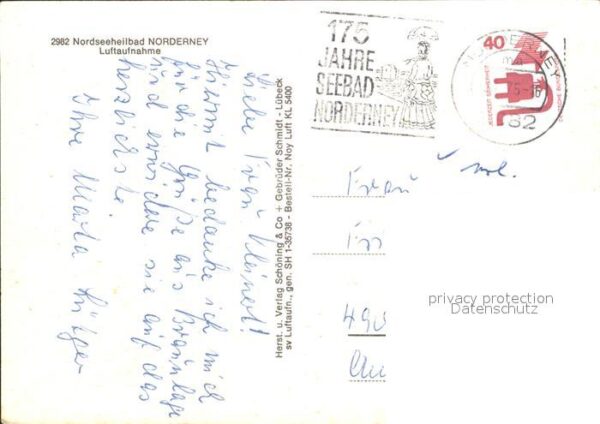 2982 Nordseeheilbad NORDERNEY
Luftaufnahme
175
JAHRE
SEEBAD
NORDERNEY
40
JEDERZEIT SICHERHEIT
DEUTSCHE BUNDESPOST
82
Liebe Frau Kleinert!
Hiermit bedanke ich mich
für die Grüße aus Braunlage
und erwidere sie auf das
herzlichste
Ihre Marta
Herst. u. Verlag Schöning & Co + Gebrüder Schmidt - Lübeck
sv Luftaufn., gen. SH 1-35736 - Bestell-Nr. Noy Luft KL 5400
Frau
490
privacy protection
Datenschutz